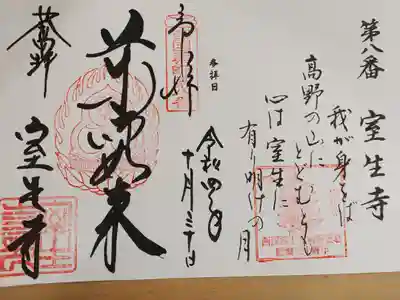 第八番 室生寺
我が身をば
高野の山に
とどむとも
心は室生に
有り明けの月
参拝日
令和四年
十月三十日
奉拝
薬師如来
室生寺